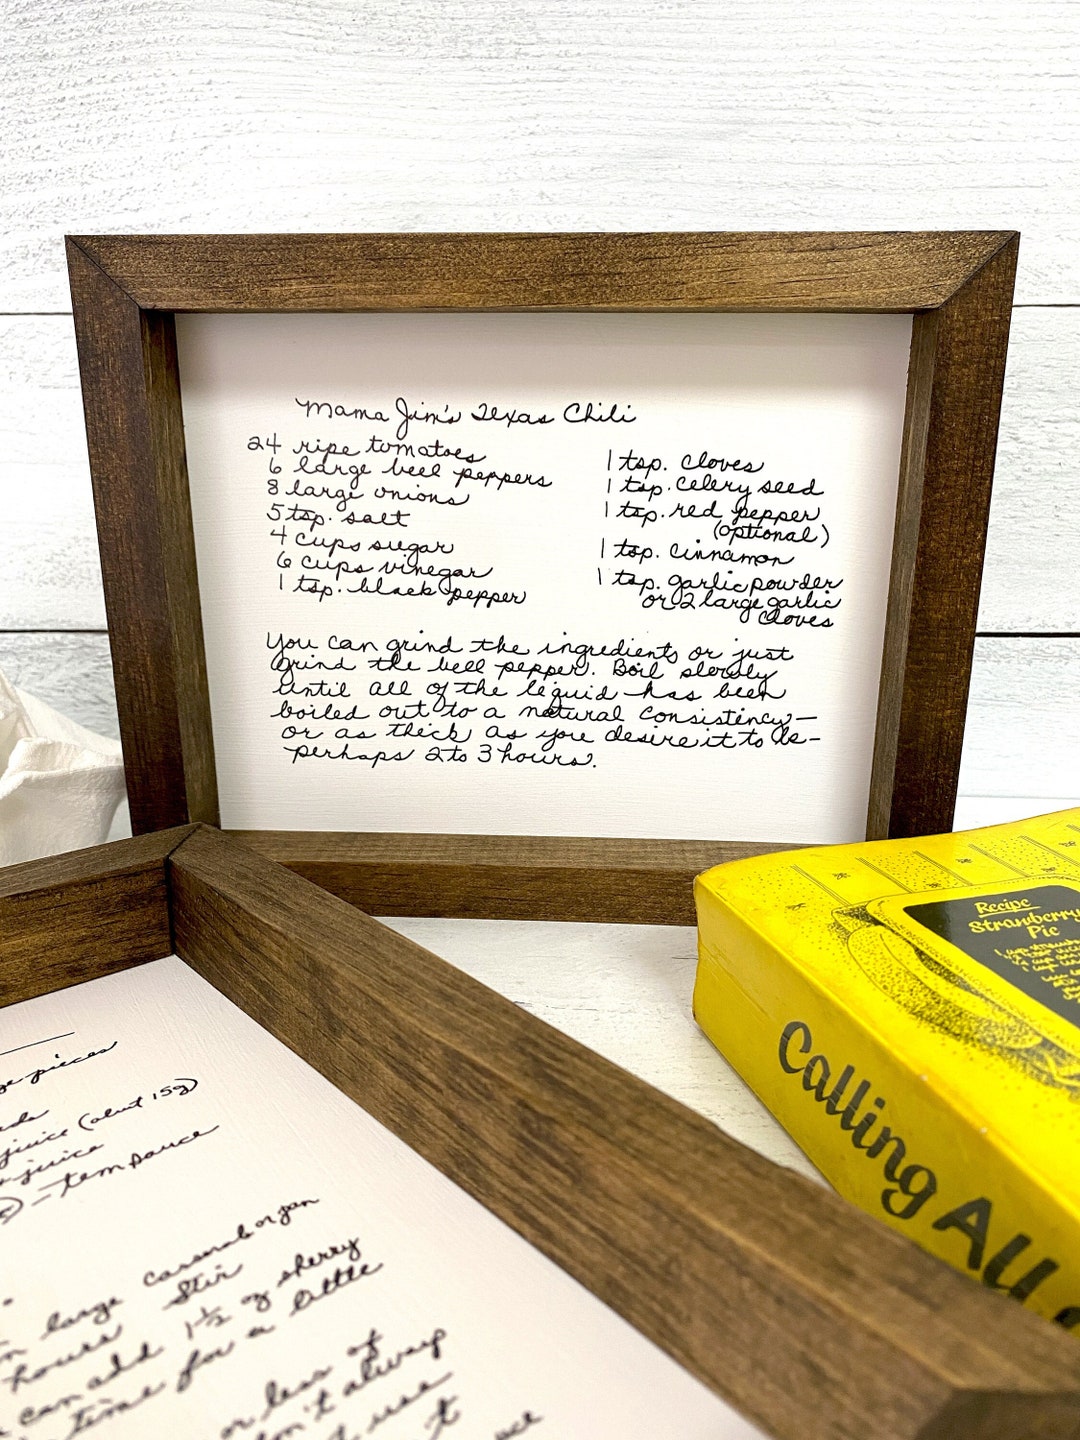 Mama Jim's Texas Chili
24 ripe tomatoes
6 large bell peppers
8 large onions
5 tsp. salt
4 cups sugar
6 cups vinegar
1 tsp. black pepper
1 tsp. cloves
1 tsp. celery seed
1 tsp. red pepper
(optional)
1 tsp. cinnamon
1 tsp. garlic powder
or 2 large garlic
cloves
You can grind the ingredients or just
grind the bell pepper. Boil slowly
until all of the liquid has been
boiled out to a natural consistency—
or as thick as you desire it to be—
perhaps 2 to 3 hours.
Recipe
Strawberry
Pie
Calling All
pieces
juice (about 15g)
juice
large
hours Stir
can add 1½ oz sherry
time for a little
or less of
don't always
use